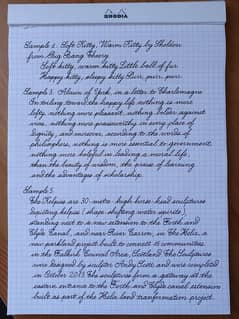 RHODIA
Sample 2. Soft Kitty, Warm Kitty by Sheldon
from Big Bang Theory
Soft kitty, warm kitty Little ball of fur
Happy kitty, sleepy kitty Purr, purr, purr.
Sample 3. Alcuin of York, in a letter to Charlemagne
In striving toward the happy life nothing is more
lofty, nothing more pleasant, nothing bolder against
vices, nothing more praiseworthy in every place of
dignity; and moreover, according to the words of
philosophers, nothing is more essential to government,
nothing more helpful in leading a moral life,
than the beauty of wisdom, the praise of learning
and the advantages of scholarship.
Sample 5.
The Kelpies are 30-metre-high horse-head sculptures
depicting kelpies (shape-shifting water spirits),
standing next to a new extension to the Forth and
Clyde Canal, and near River Carron, in The Helix, a
new parkland project built to connect 16 communities
in the Falkirk Council Area, Scotland. The sculptures
were designed by sculptor Andy Scott and were completed
in October 2013. The sculptures form a gateway at the
eastern entrance to the Forth and Clyde canal extension
built as part of the Helix land transformation project.